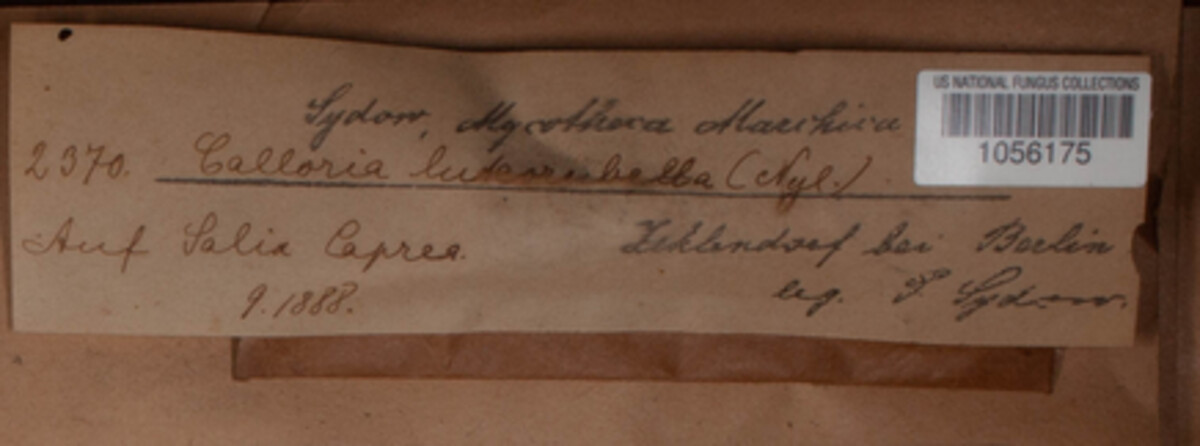 Sydow, Mycotheca Marchica
US NATIONAL FUNGUS COLLECTIONS
1056175
2370. Calloria luteorubella (Nyl.)
Auf Salix Caprea. Zehlendorf bei Berlin
9.1888. leg. P. Sydow.